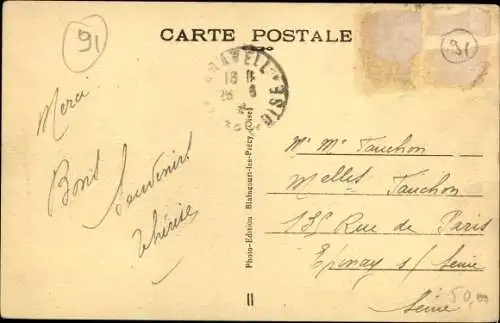 91
CARTE POSTALE
91
18 H
26 - 8
OISE
Merci
Bons
Souvenirs
Thérèse
Photo-Edition Blaincourt-les-Précy (Oise)
II
Mr Me Fauchon
Melles Fauchon
135 Rue de Paris
Epinay s/ Seine
Seine
50,00